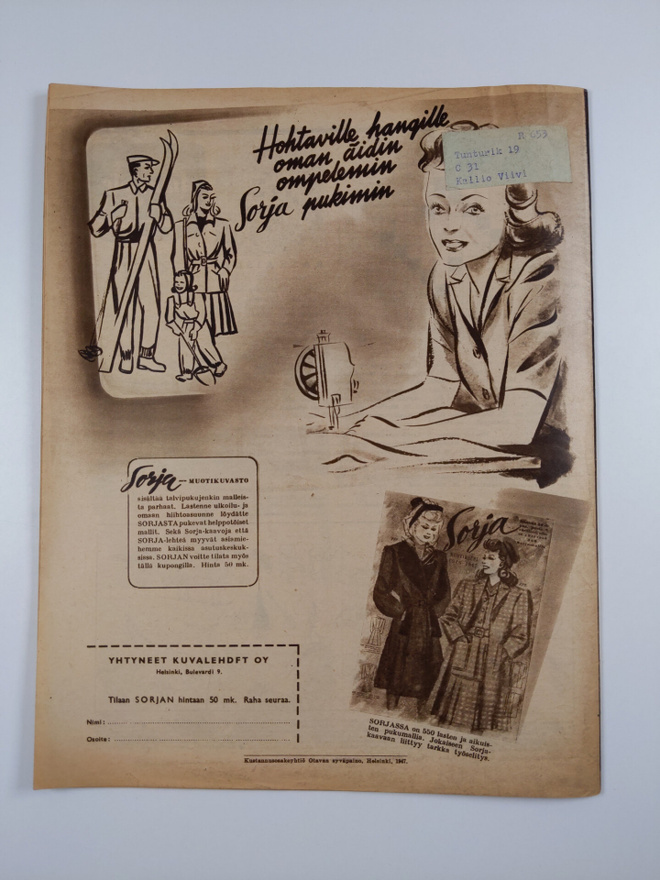 Hohtaville hangille
oman äidin
ompelemin
Sorja pukimin
R 653
Tunturik 19
C 31
Kallio Viivi
Sorja — MUOTIKUVASTO
sisältää talvipukujenkin malleis-
ta parhaat. Lastenne ulkoilu- ja
omaan hiihtoasuunne löydätte
SORJASTA pukevat helppotöiset
mallit. Sekä Sorja-kaavoja että
SORJA-lehteä myyvät asiamie-
hemme kaikissa asutuskeskuk-
sissa. SORJAN voitte tilata myös
tällä kupongilla. Hinta 50 mk.
Sorja
YHTYNEET KUVALEHDET OY
Helsinki, Bulevardi 9.
Tilaan SORJAN hintaan 50 mk. Raha seuraa.
Nimi:
Osoite:
SORJASSA on 550 lasten ja aikuis-
ten pukumallia. Jokaiseen Sorja-
kaavaan liittyy tarkka työselitys.
Kustannusosakeyhtiö Otavan syväpaino, Helsinki, 1947.